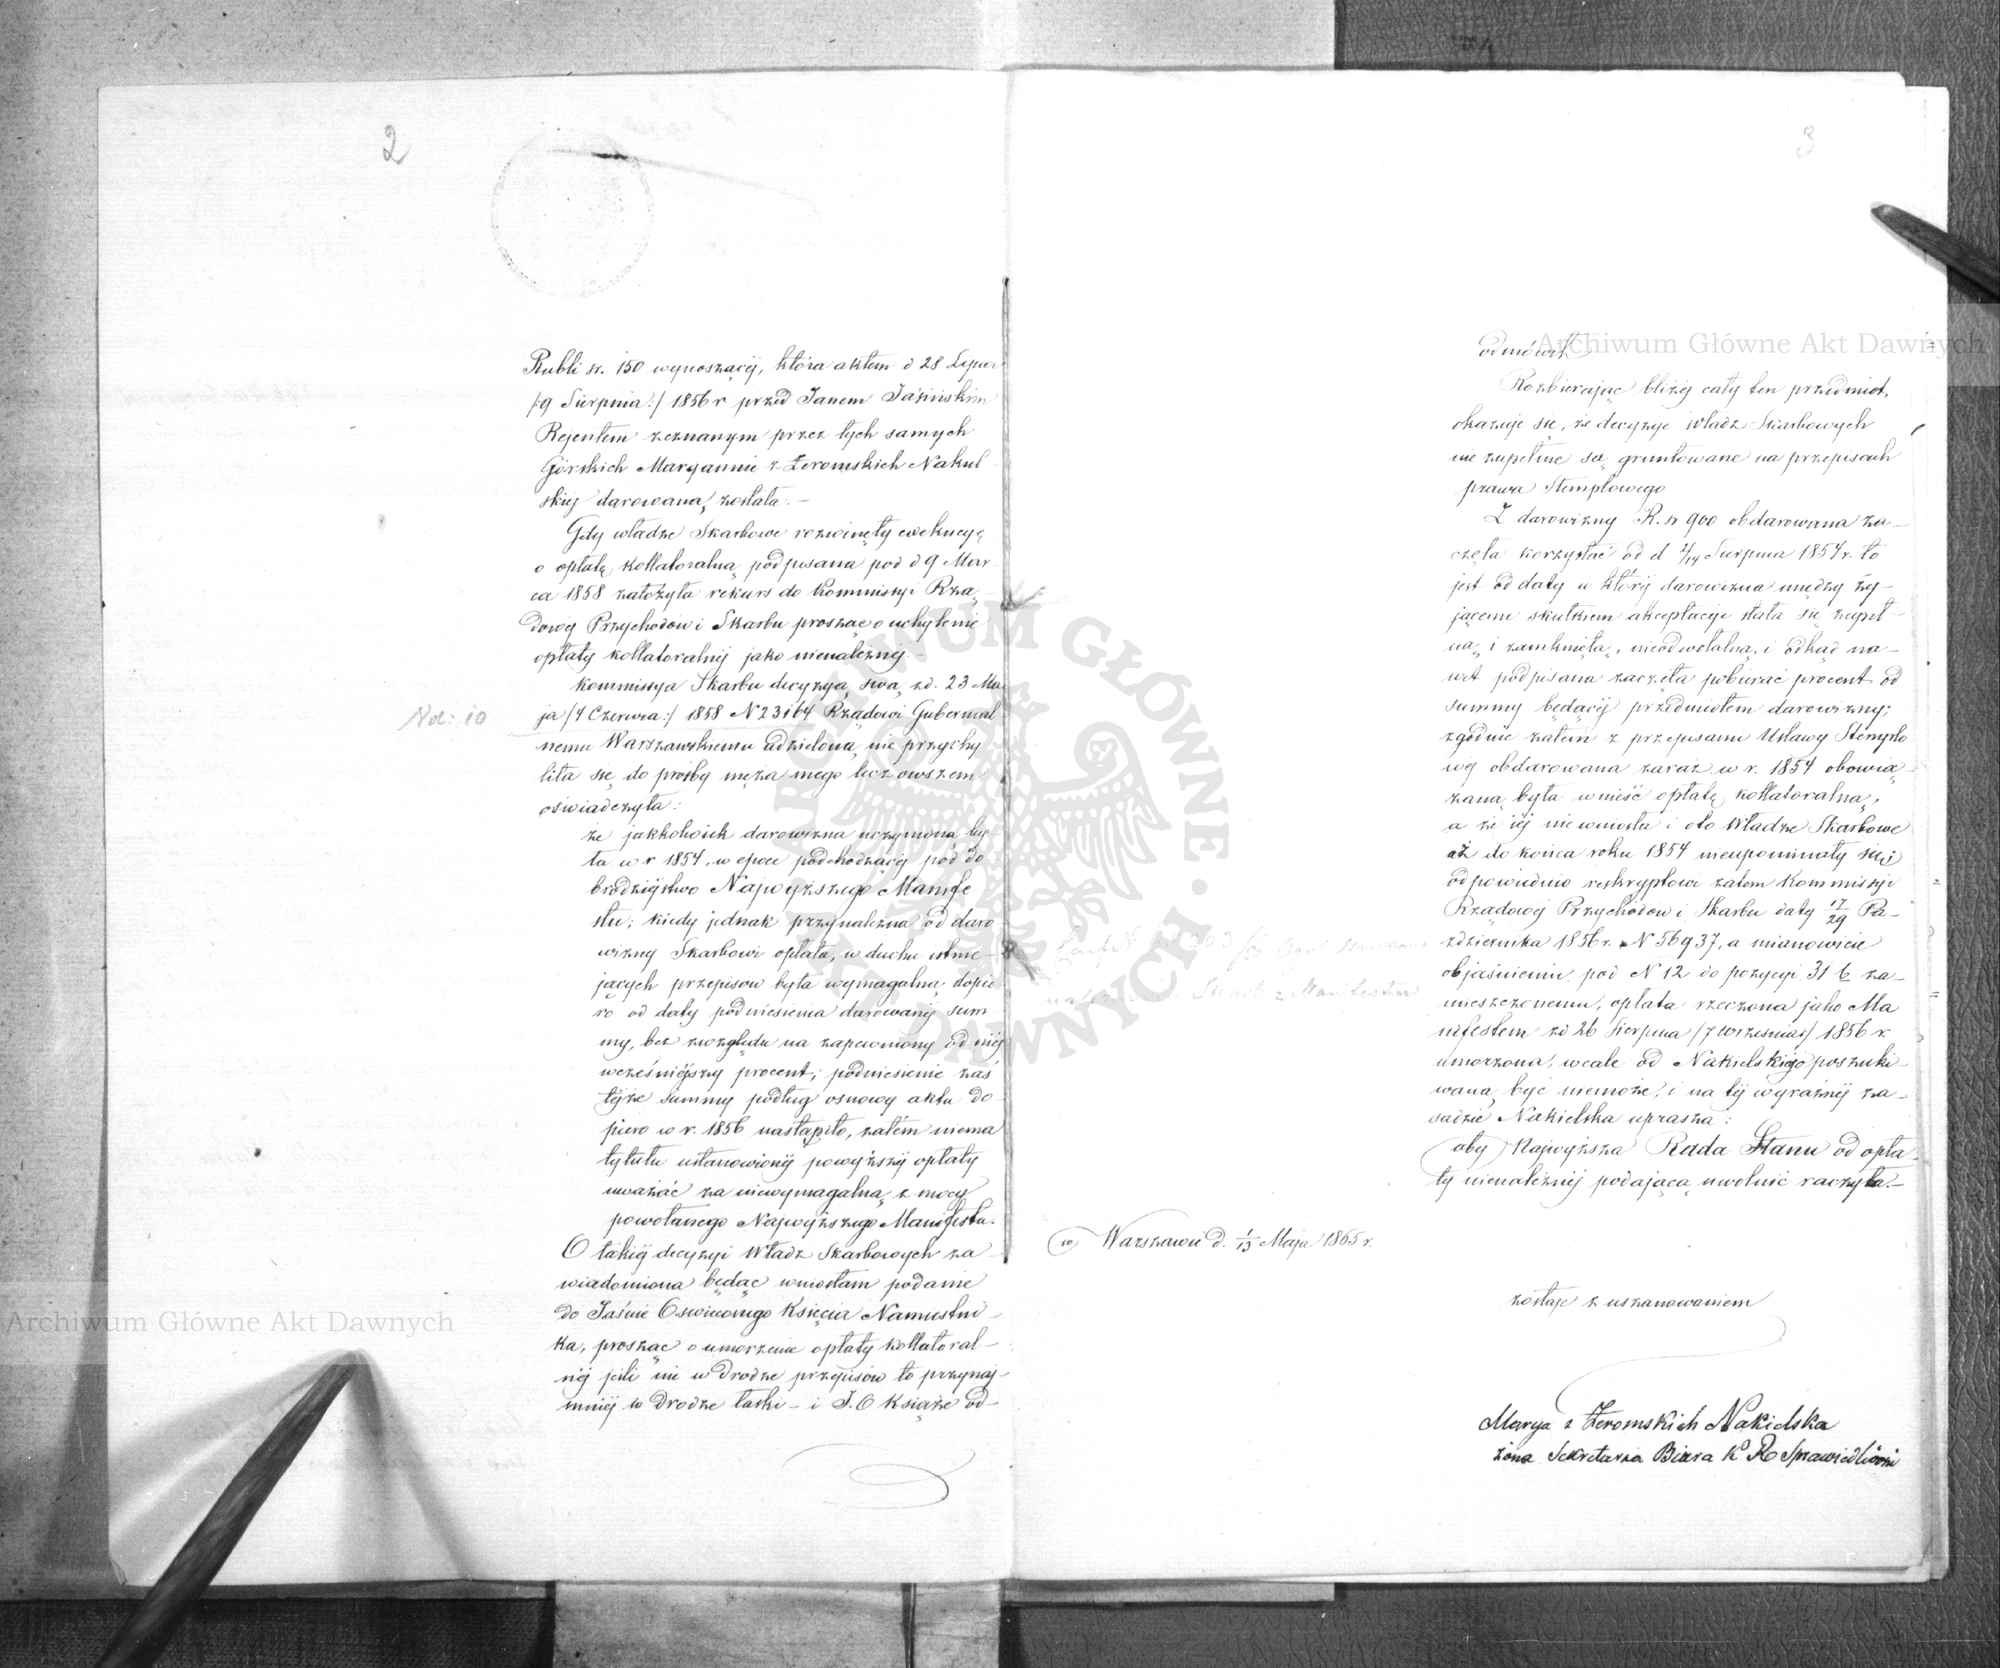 2
Rubli sr. 150 wynoszącéj, która aktem d 28 Lipca
/:9 Sierpnia:/ 1856 r przed Janem Jasińskim
Rejentem zeznanym przez tych samych
Górskich Maryannie z Żeromskich Nakul
skiéj darowaną została. –
Gdy władze Skarbowe rozwinęły exekucyę
o opłatę kollateralną podpisana pod d 9 Mar
ca 1858 założyła rekurs do Kommissyi Rzą
dowéj Przychodów i Skarbu prosząc o uchylenie
opłaty kollateralnéj jako nienależnéj. –
Kommissya Skarbu decyzyą swą zd. 23 Ma
ja /4 Czerwca:/ 1858 N 23164 Rządowi Gubernial
nemu Warszawskiemu udzieloną nie przychy
liła się do prośby męża mego lecz owszem
oświadczyła:
że jakkolwiek darowizna uczynioną by
ła w r 1854, w epoce podchodzącéj pod do
brodziejstwo Najwyższego Manife
stu; kiedy jednak przynależna od daro
wizny Skarbowi opłata, w duchu istnie –
jących przepisów była wymagalną dopie
ro od daty podniesienia darowanéj sum
my, bez względu na zapewniony od niéj
wcześniejszy procent; podniesienie zaś
téjże summy podług osnowy aktu do –
piero w r. 1856 nastąpiło, zatém niema
tytułu ustanowionéj powyższéj opłaty
uważać za niewymagalną z mocy
powołanego Najwyższego Manifestu.
O takiéj decyzyi Władz Skarbowych za –
wiadomiona będąc wniosłam podanie
do Jaśnie Oswieconego Księcia Namiestni –
ka, prosząc o umorzenie opłaty kollateral –
néj jeśli nie w drodze przepisów to przynaj-
mniéj w drodze łaski – i J.O Książe od –
No: 10
3
odmówił
Rozbierając bliżéj cały ten przedmiot,
okazuje się, że decyzye Władz Skarbowych
nie zupełnie są gruntowane na przepisach
prawa Stemplowego
Z darowizny R. sr 900 obdarowana za –
częła korzystać od d 2/14 Sierpnia 1854 r. to
jest od daty w któréj darowizna między ży –
jącemi skutkiem akceptacyi stała się zupeł –
ną i zamkniętą, nieodwołalną, i odkąd na –
wet podpisana zaczęła pobierać procent od
summy będącéj przedmiotem darowizny;
zgodnie zatem z przepisami Ustawy Stemplo
wéj obdarowana zaraz w r. 1854 obowią
zaną była wnieść opłatę kollateralną,
a że jéj nie wniosła i oto Władze Skarbowe
aż do końca roku 1854 nieupominały się,
odpowiednio reskryptowi zatem Kommissyi
Rządowéj Przychodów i Skarbu daty 17/29 Pa –
zdziernika 1856 r. N 56937, a mianowicie
objaśnieniu pod N 12 do pozycyi 31 b za –
mieszczonemu, opłata rzeczona jako Ma
nifestem zd 26 Sierpnia /7 Września/ 1856 r.
umorzona, wcale od Nakielskiéj poszuki –
waną być niemoże, i na téj wyraźnéj za –
sadzie Nakielska uprasza:
aby Najwyższa Rada Stanu od opła –
ty nienależnéj podającą uwolnić raczyła. –
w Warszawie d. 1/13 Maja 1865 r.
zostaję z uszanowaniem
Marya z Żeromskich Nakielska
żona Sekretarza Biura K R Sprawiedliwości
Archiwum Główne Akt Dawnych
Archiwum Główne Akt Dawnych
ARCHIWUM GŁÓWNE AKT DAWNYCH